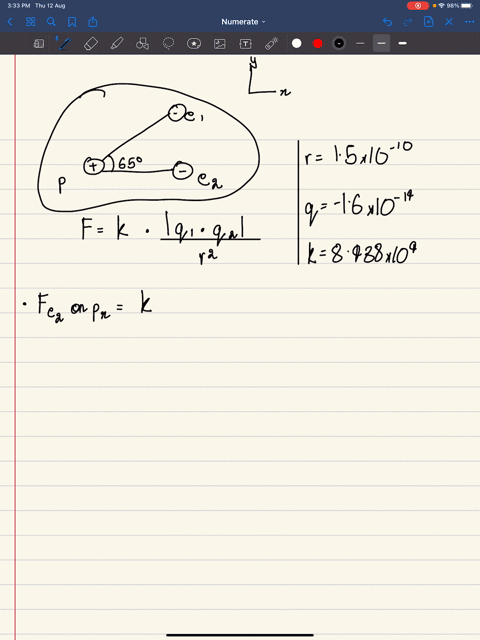 3:33 PM Thu 12 Aug
98%
Numerate
y
x
e₁
+
65°
-
-
P
e₂
F = k · |q₁ · q₂| / r²
r = 1.5x10⁻¹⁰
q = -1.6x10⁻¹⁹
k = 8.988x10⁹
· Fₑ₂ on pₓ = k